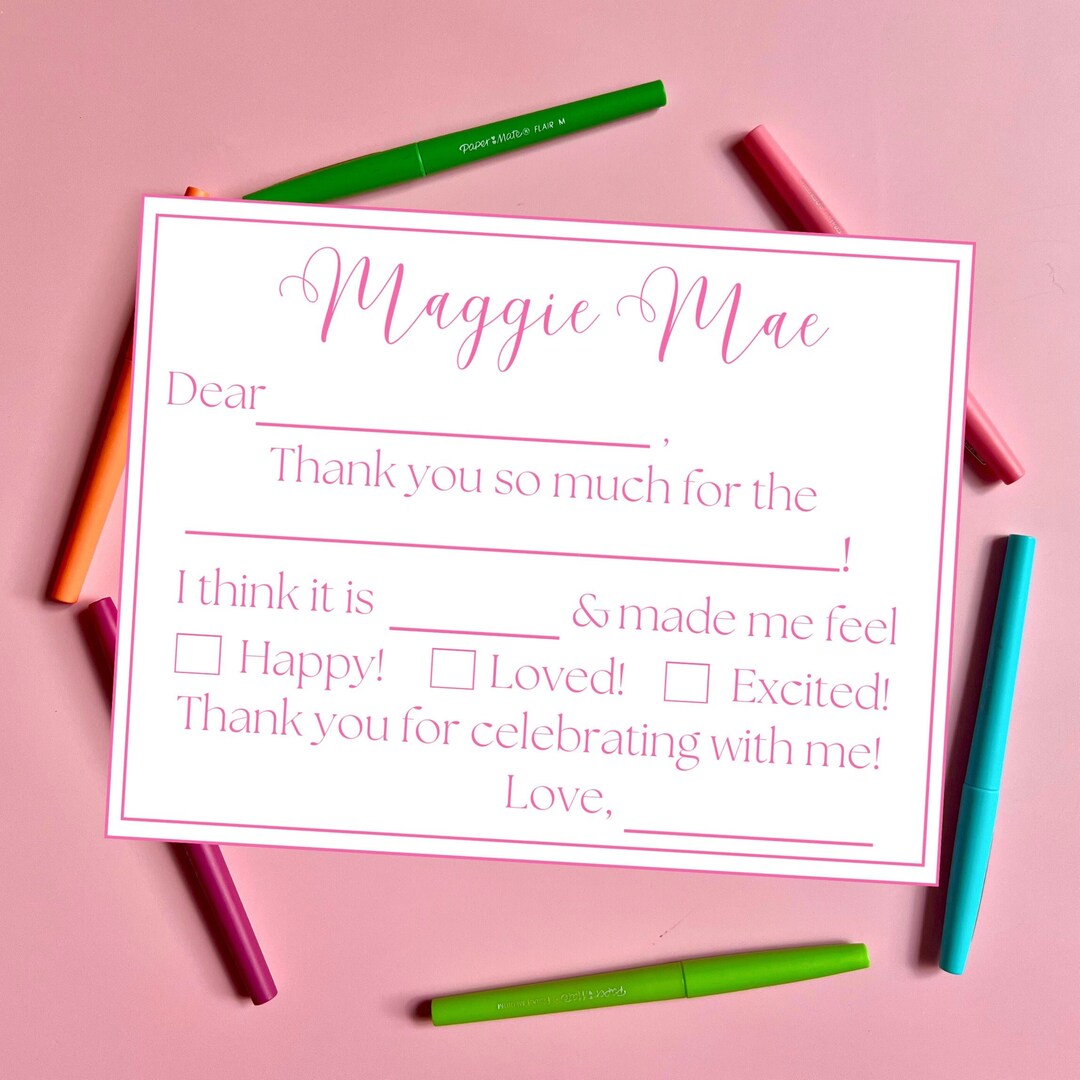 Paper Mate® FLAIR M
Maggie Mae
Dear ,
Thank you so much for the
!
I think it is & made me feel
Happy! Loved! Excited!
Thank you for celebrating with me!
Love,
Paper Mate